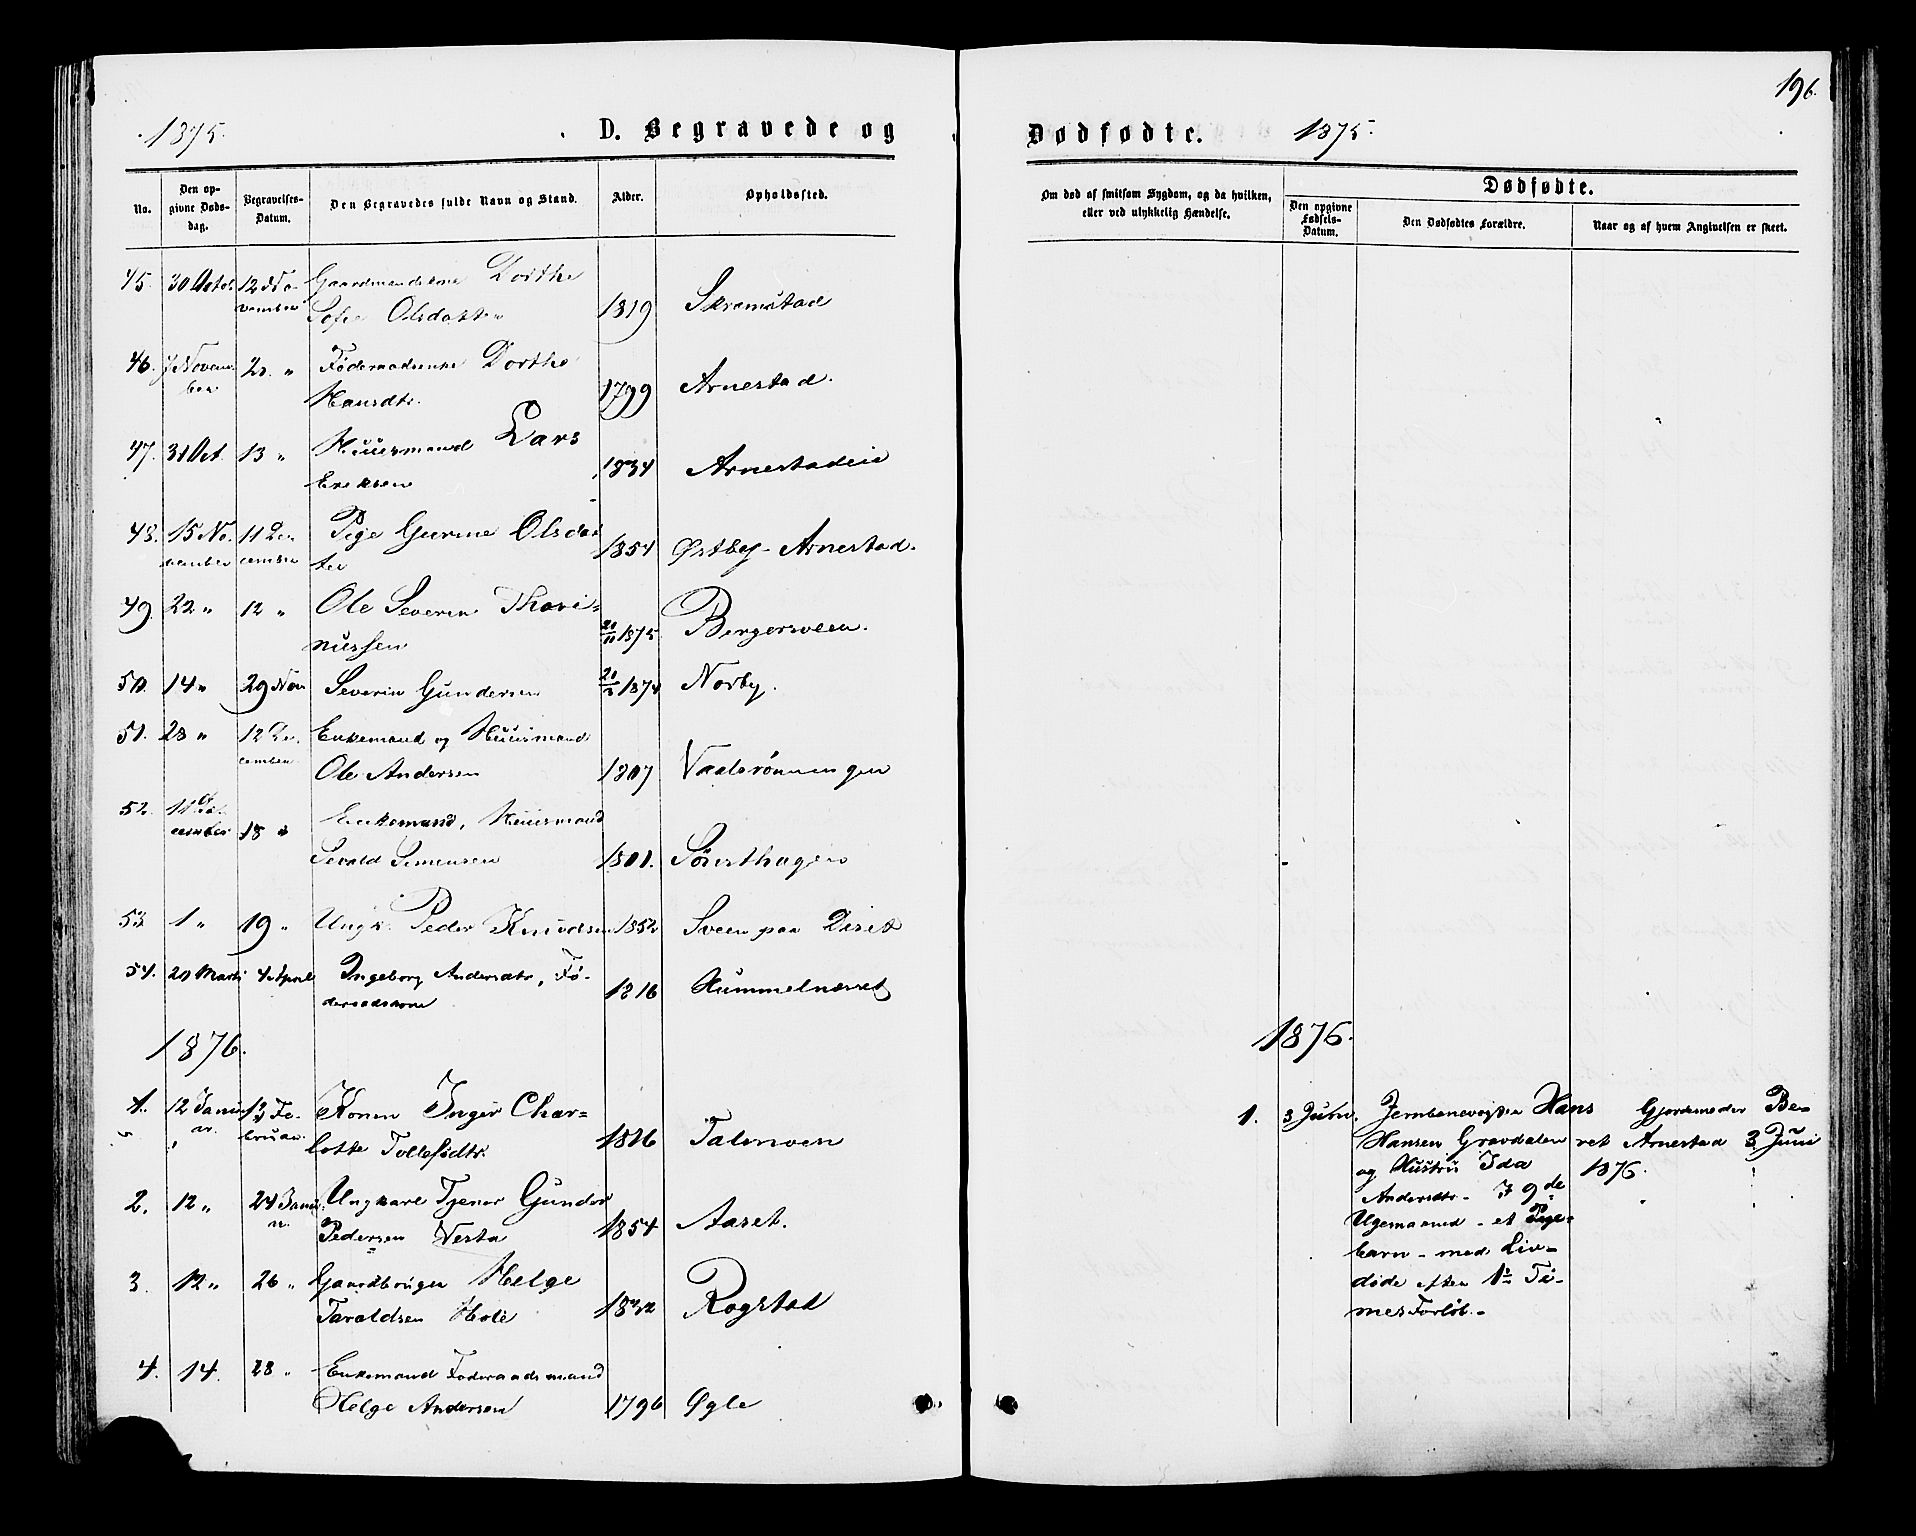 196.
1875.
D. Begravede og
Dødfødte.
1875.
No.
Den opgivne Døds-dag.
Begravelses-Datum.
Den Begravedes fulde Navn og Stand.
Alder.
Opholdssted.
Om død af smitsom Sygdom, og da hvilken, eller ved ulykkelig Hændelse.
Dødfødte.
Den opgivne Fødsels-Datum.
Den Dødfødtes Forældre.
Naar og af hvem Angivelsen er skeet.
45. 30 Octob 12 No-
vember
Gaardmandskone Dorthe
Sofie Olsdatter 1819 Skramstad
46. 7 Novem-
ber 21 " Føderaadsenke Dorthe
Hansdtr. 1799 Arnestad.
47. 31 Oct. 13 " Huusmand Lars
Eriksen 1834 Arnestadeie
48. 15 No-
vember 11 De-
cember Pige Gurine Olsdat
ter 1854 Østby-Arnestad.
49. 22 " 12 " Ole Severin Thori-
nussen 20/11 1875 Bergersveen.
50. 14 " 29 Nov Severin Gundersen 1874 Norby.
51. 28 " 12 De-
cember Enkemand og Huusmand
Ole Andersen 1807
52. 11 De-
cember 18 " Enkemand, Huusmand
Sevald Simensen 1801.
53 1 " 19 " Ungk. Peder Knudsen 1852 Sveen paa Diset
54. 20 Marts 4 April Ingeborg Andersdtr, Fø-
deraadskone 1816 Hummelnæsset
1876.
1876.
1. 12 Janu-
ar. 13 Fe-
bruar. Konen Inger Char-
lotte Tollefsdtr. 1826 Talmoen
2. 12 " 24 Janu-
ar. Ungkarl Tjener Gunder
Pedersen Vesta 1854 Aaset.
3. 12 " 26 " Gaardbruger Helge
Taraldsen Hole 1832 Rogstad
4. 14. 28 " Enkemand Føderaadsmand
Helge Andersen 1796 Øgle
1. 3 Juni. Jernbanevogter Hans
Hansen Gravdalen
og Hustru Ida
Andersdtr. I 9de
Ugemaaned - et Pige-
barn - med Liv -
døde efter 1 Ti-
mes Forløb. -
Gjordemoder Be-
ret Arnestad 3 Juni
1876.